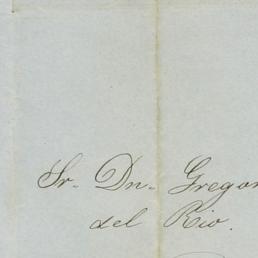 Sr. Dn. Gregor
del Rio.